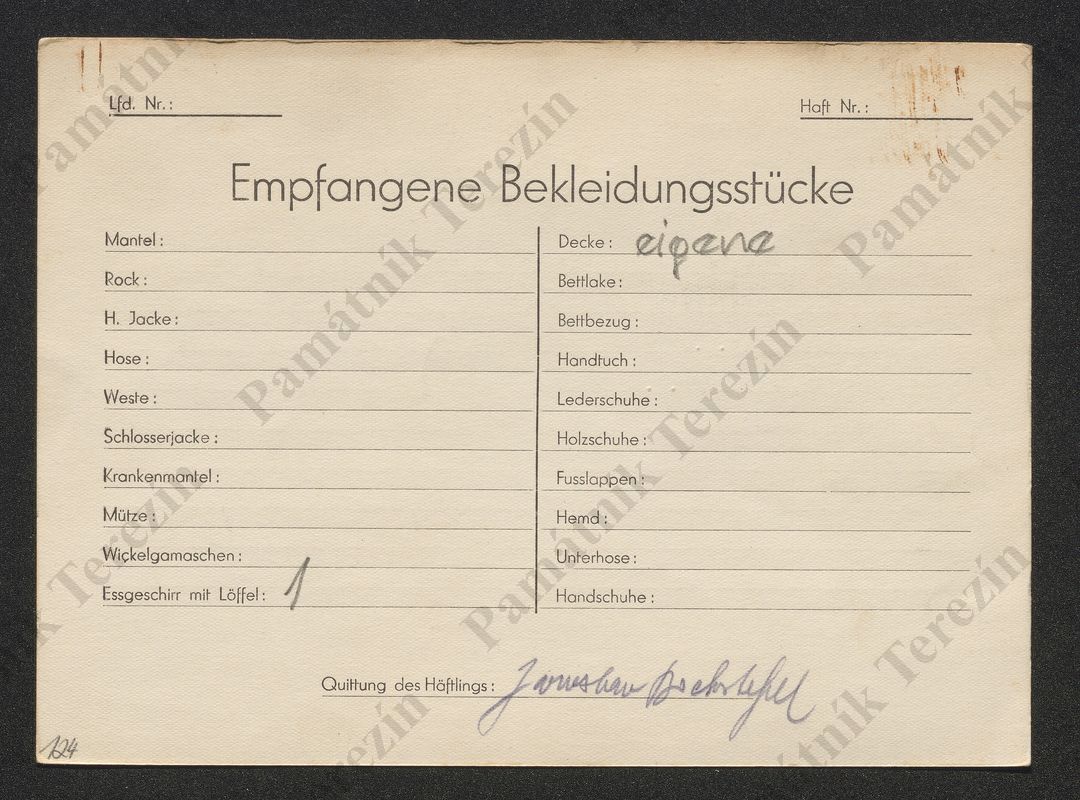 Lfd. Nr.:
Haft Nr.:
Empfangene Bekleidungsstücke
Mantel:
Rock:
H. Jacke:
Hose:
Weste:
Schlosserjacke:
Krankenmantel:
Mütze:
Wickelgamaschen:
Essgeschirr mit Löffel: 1
Decke: eigene
Bettlake:
Bettbezug:
Handtuch:
Lederschuhe:
Holzschuhe:
Fusslappen:
Hemd:
Unterhose:
Handschuhe:
Quittung des Häftlings: Jaroslav
124
Památník Terezín